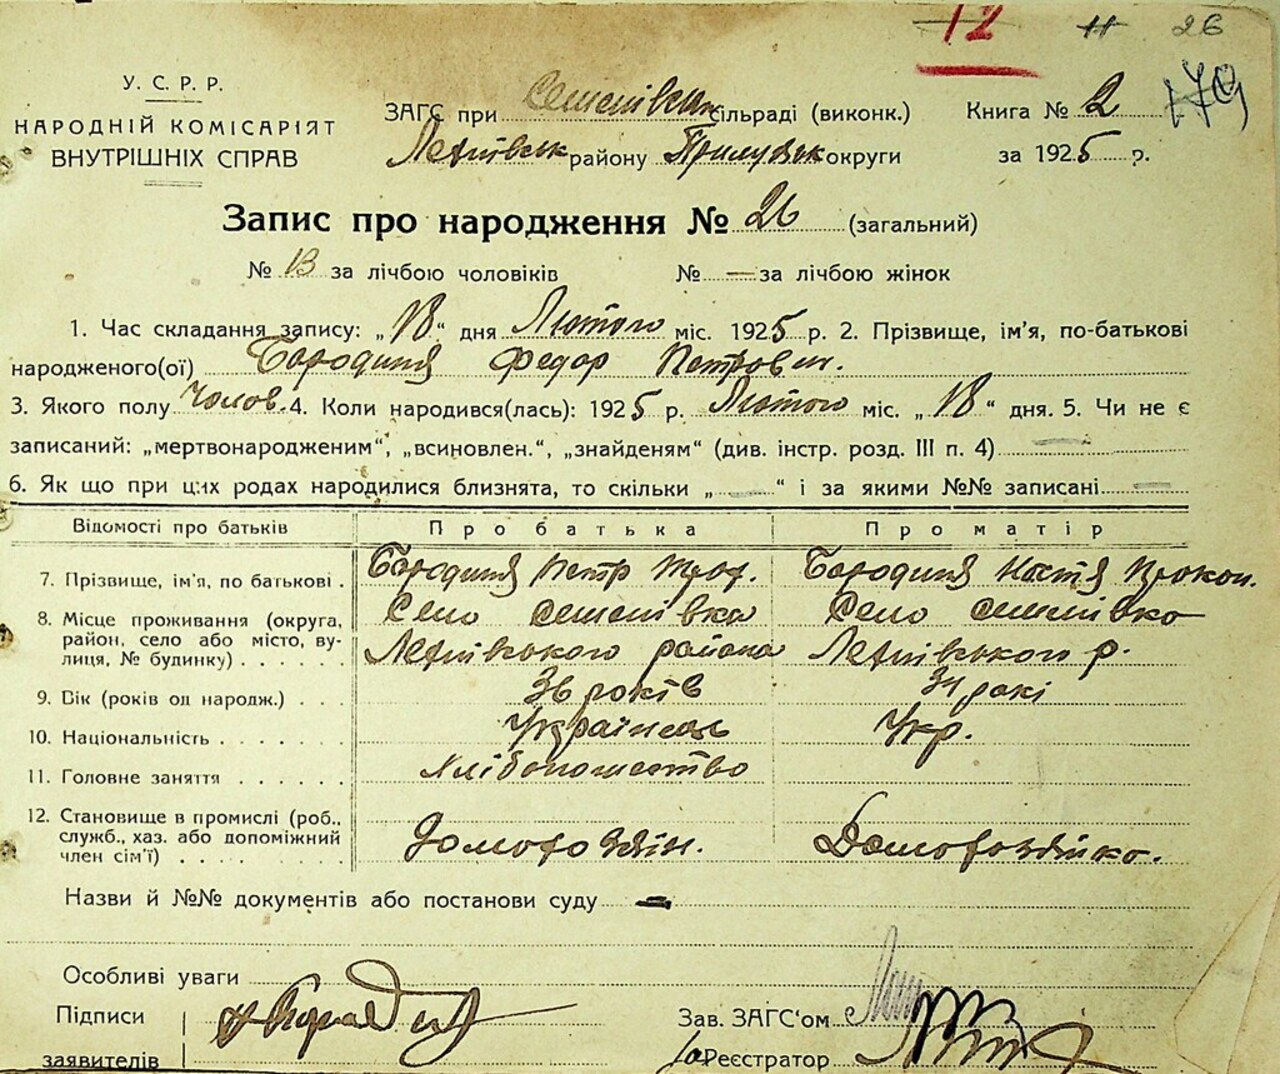 12 11 26
179
У. С. Р. Р.
НАРОДНІЙ КОМІСАРІЯТ
ВНУТРІШНІХ СПРАВ
ЗАГС при Семенівськ сільраді (виконк.)
районy Прилуцьк округи
Книга № 2
за 1925 р.
Запис про народження № 26 (загальний)
№ 13 за лічбою чоловіків № — за лічбою жінок
1. Час складання запису: „18“ дня Лютого міс. 1925 р. 2. Прізвище, ім’я, по-батькові
народженого(ої) Бородиня Федор Петрович.
3. Якого полу Чолов. 4. Коли народився(лась): 1925 р. Лютого міс. „18“ дня. 5. Чи не є
записаний: „мертвонародженим“, „всиновлен.“, „знайденям“ (див. інстр. розд. III п. 4) —
6. Як що при цих родах народилися близнята, то скільки „—“ і за якими №№ записані —
Відомості про батьків Про батька Про матір
7. Прізвище, ім’я, по батькові . Бородиня Петр Бородиня Настя Прокоп.
8. Місце проживання (округа, район, село або місто, вулиця, № будинку) . . . . . . Село Семенівка Село Семенівка
района р.
9. Вік (років од народж.) . . . 36 років 31 рокі
10. Національність . . . . . . . Українець Укр.
11. Головне заняття . . . . . . Хлібопашество
12. Становище в промислі (роб., служб., хаз. або допоміжний член сім’ї) . . . . . Домохозяїн. Домохозяйка.
Назви й №№ документів або постанови суду —
Особливі уваги
Підписи
заявителів
Зав. ЗАГС‘ом
Реєстратор